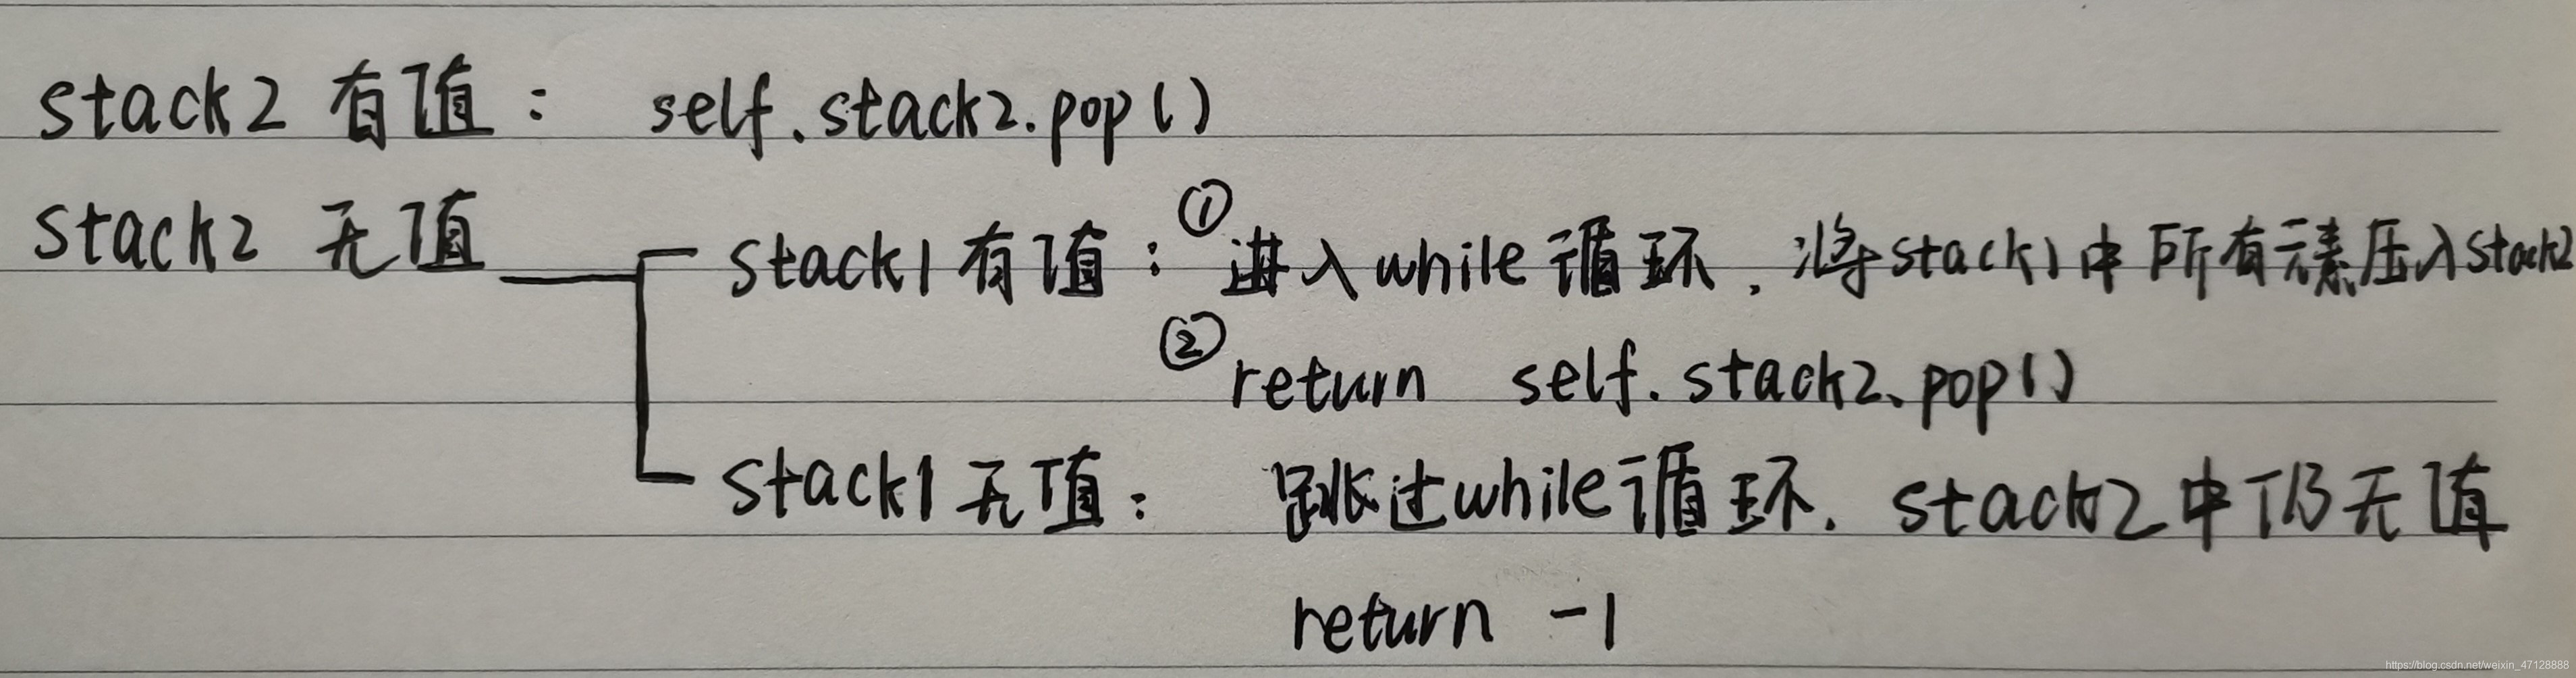 stack2 有值： self.stack2.pop()
stack2 无值
stack1有值：①进入while循环，将stack1中所有元素压入stack2
②return self.stack2.pop()
stack1无值： 跳过while循环. stack2中仍无值
return -1
https://blog.csdn.net/weixin_47128888